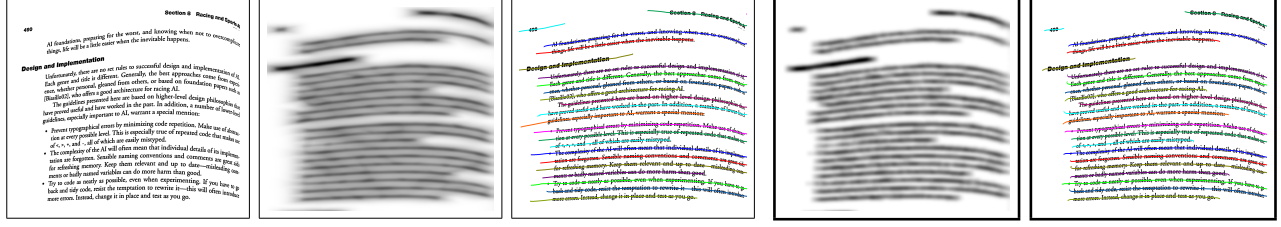 Section 6 Racing and Sports
490
AI foundations, preparing for the worst, and knowing when not to overcomplicate
things, life will be a little easier when the inevitable happens.
Design and Implementation
Unfortunately, there are no set rules to successful design and implementation of AI.
Each genre and title is different. Generally, the best approaches come from
ence, whether personal, gleaned from others, or based on foundation papers
who offers a good architecture for racing AI.
The guidelines presented here are based on higher-level design philosophies
have proved useful and have worked in the past. In addition, a number of
guidelines, especially important to AI, warrant a special mention:
• Prevent typographical errors by minimizing code repetition. Make use of
tion at every possible level. This is especially true of repeated code that makes
of <, >, +, and -, all of which are easily mistyped.
• The complexity of the AI will often mean that individual details of its
tation are forgotten. Sensible naming conventions and comments are great
for refreshing memory. Keep them relevant and up to date—misleading
ments or badly named variables can do more harm than good.
• Try to code as neatly as possible, even when experimenting. If you have to
back and tidy code, resist the temptation to rewrite it—this will often
more errors. Instead, change it in place and test as you go.